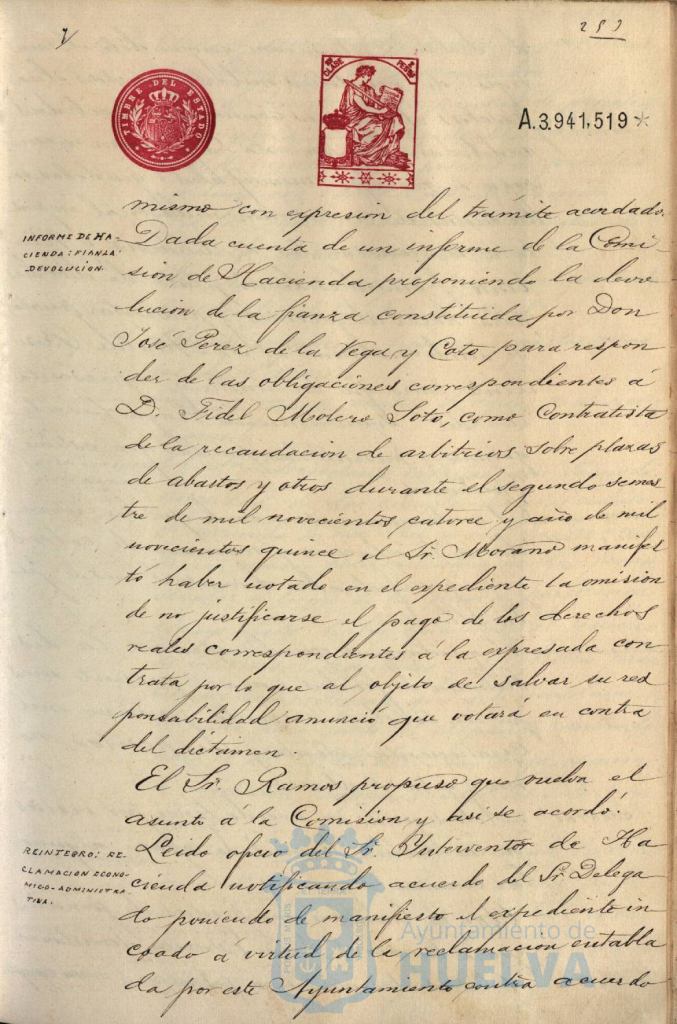 253
TIMBRE DEL ESTADO
CLASE PESETA
A.3.941,519*
mismo con expresion del trámite acordado.
INFORME DE HA-
CIENDA: FIANZA
DEVOLUCIÓN.
Dada cuenta de un informe de la Comi-
sion de Hacienda proponiendo la devo
lucion de la fianza constituida por Don
José Perez de la Vega y Coto para respon
der de las obligaciones correspondientes á
D. Fidel Molero Soto, como Contratista
de la recaudacion de arbitrios sobre plazas
de abastos y otros durante el segundo semes
tre de mil novecientos catorce y año de mil
novecientos quince el Sr. Morano manifes
tó haber notado en el expediente la omision
de no justificarse el pago de los derechos
reales correspondientes á la expresada con
trata por lo que al objeto de salvar su res
ponsabilidad anunció que votará en contra
del dictámen.
El Sr. Ramos propuso que vuelva el
asunto á la Comision y asi se acordó.
REINTEGRO: RE-
CLAMACION ECONO-
MICO-ADMINISTRA-
TIVA.
Leido oficio del Sr. Interventor de Ha
cienda notificando acuerdo del Sr. Delega
do poniendo de manifiesto el expediente in
coado á virtud de la reclamacion entabla
da por este Ayuntamiento contra acuerdo
Ayuntamiento de
HUELVA